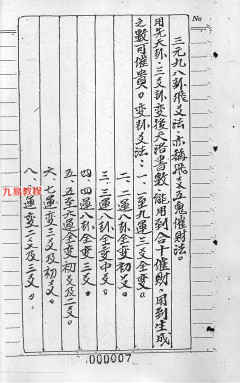 No
三元九八卦飛爻法，亦稱飛爻五鬼催財法。
用先天卦，三爻卦变後天洛書數，能用到合十催財，用到生成
之數可催貴。变卦爻法：一、一至九運三爻全变。
二、二運八卦全变初爻。
三、三運八卦全变中爻。
四、四運八卦全变三爻。
五、五至六運全变初爻及二爻。
六、七運变三爻及初爻。
八、八運变二爻及三爻。
九易教程
000007